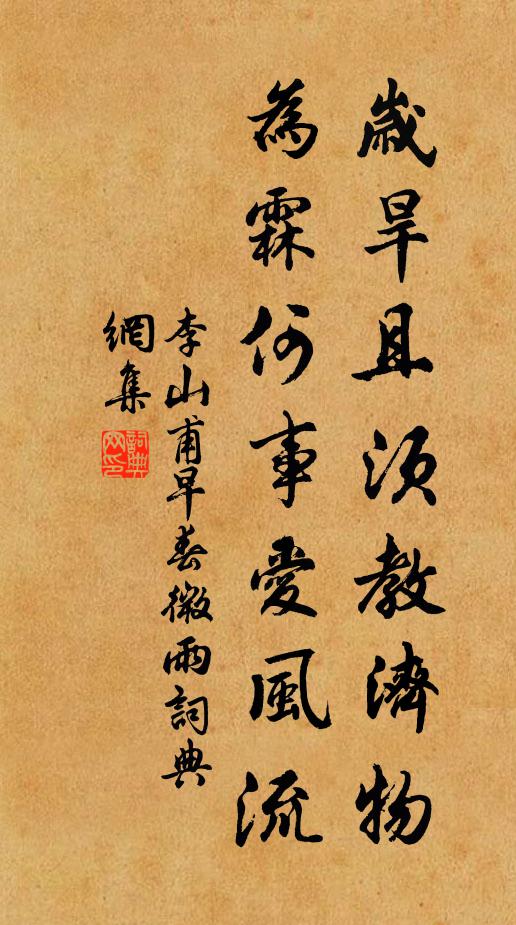 歲旱且須教濟物
為霖何事愛風流
李山甫早春微雨詞典
網集
詞典
网印